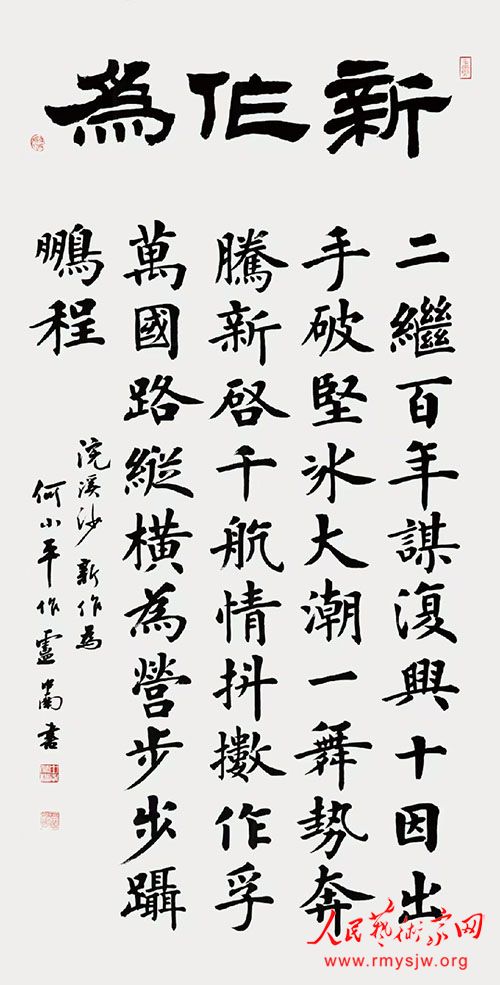 新作為
二繼百年謀復興十因出
手破堅冰大潮一舞勢奔
騰新啓千航情抖擻作孚
萬國路縱橫為營步步躡
鵬程
浣溪沙 新作為
何小平作 盧中南書
人民藝術家网
www.rmysjw.org